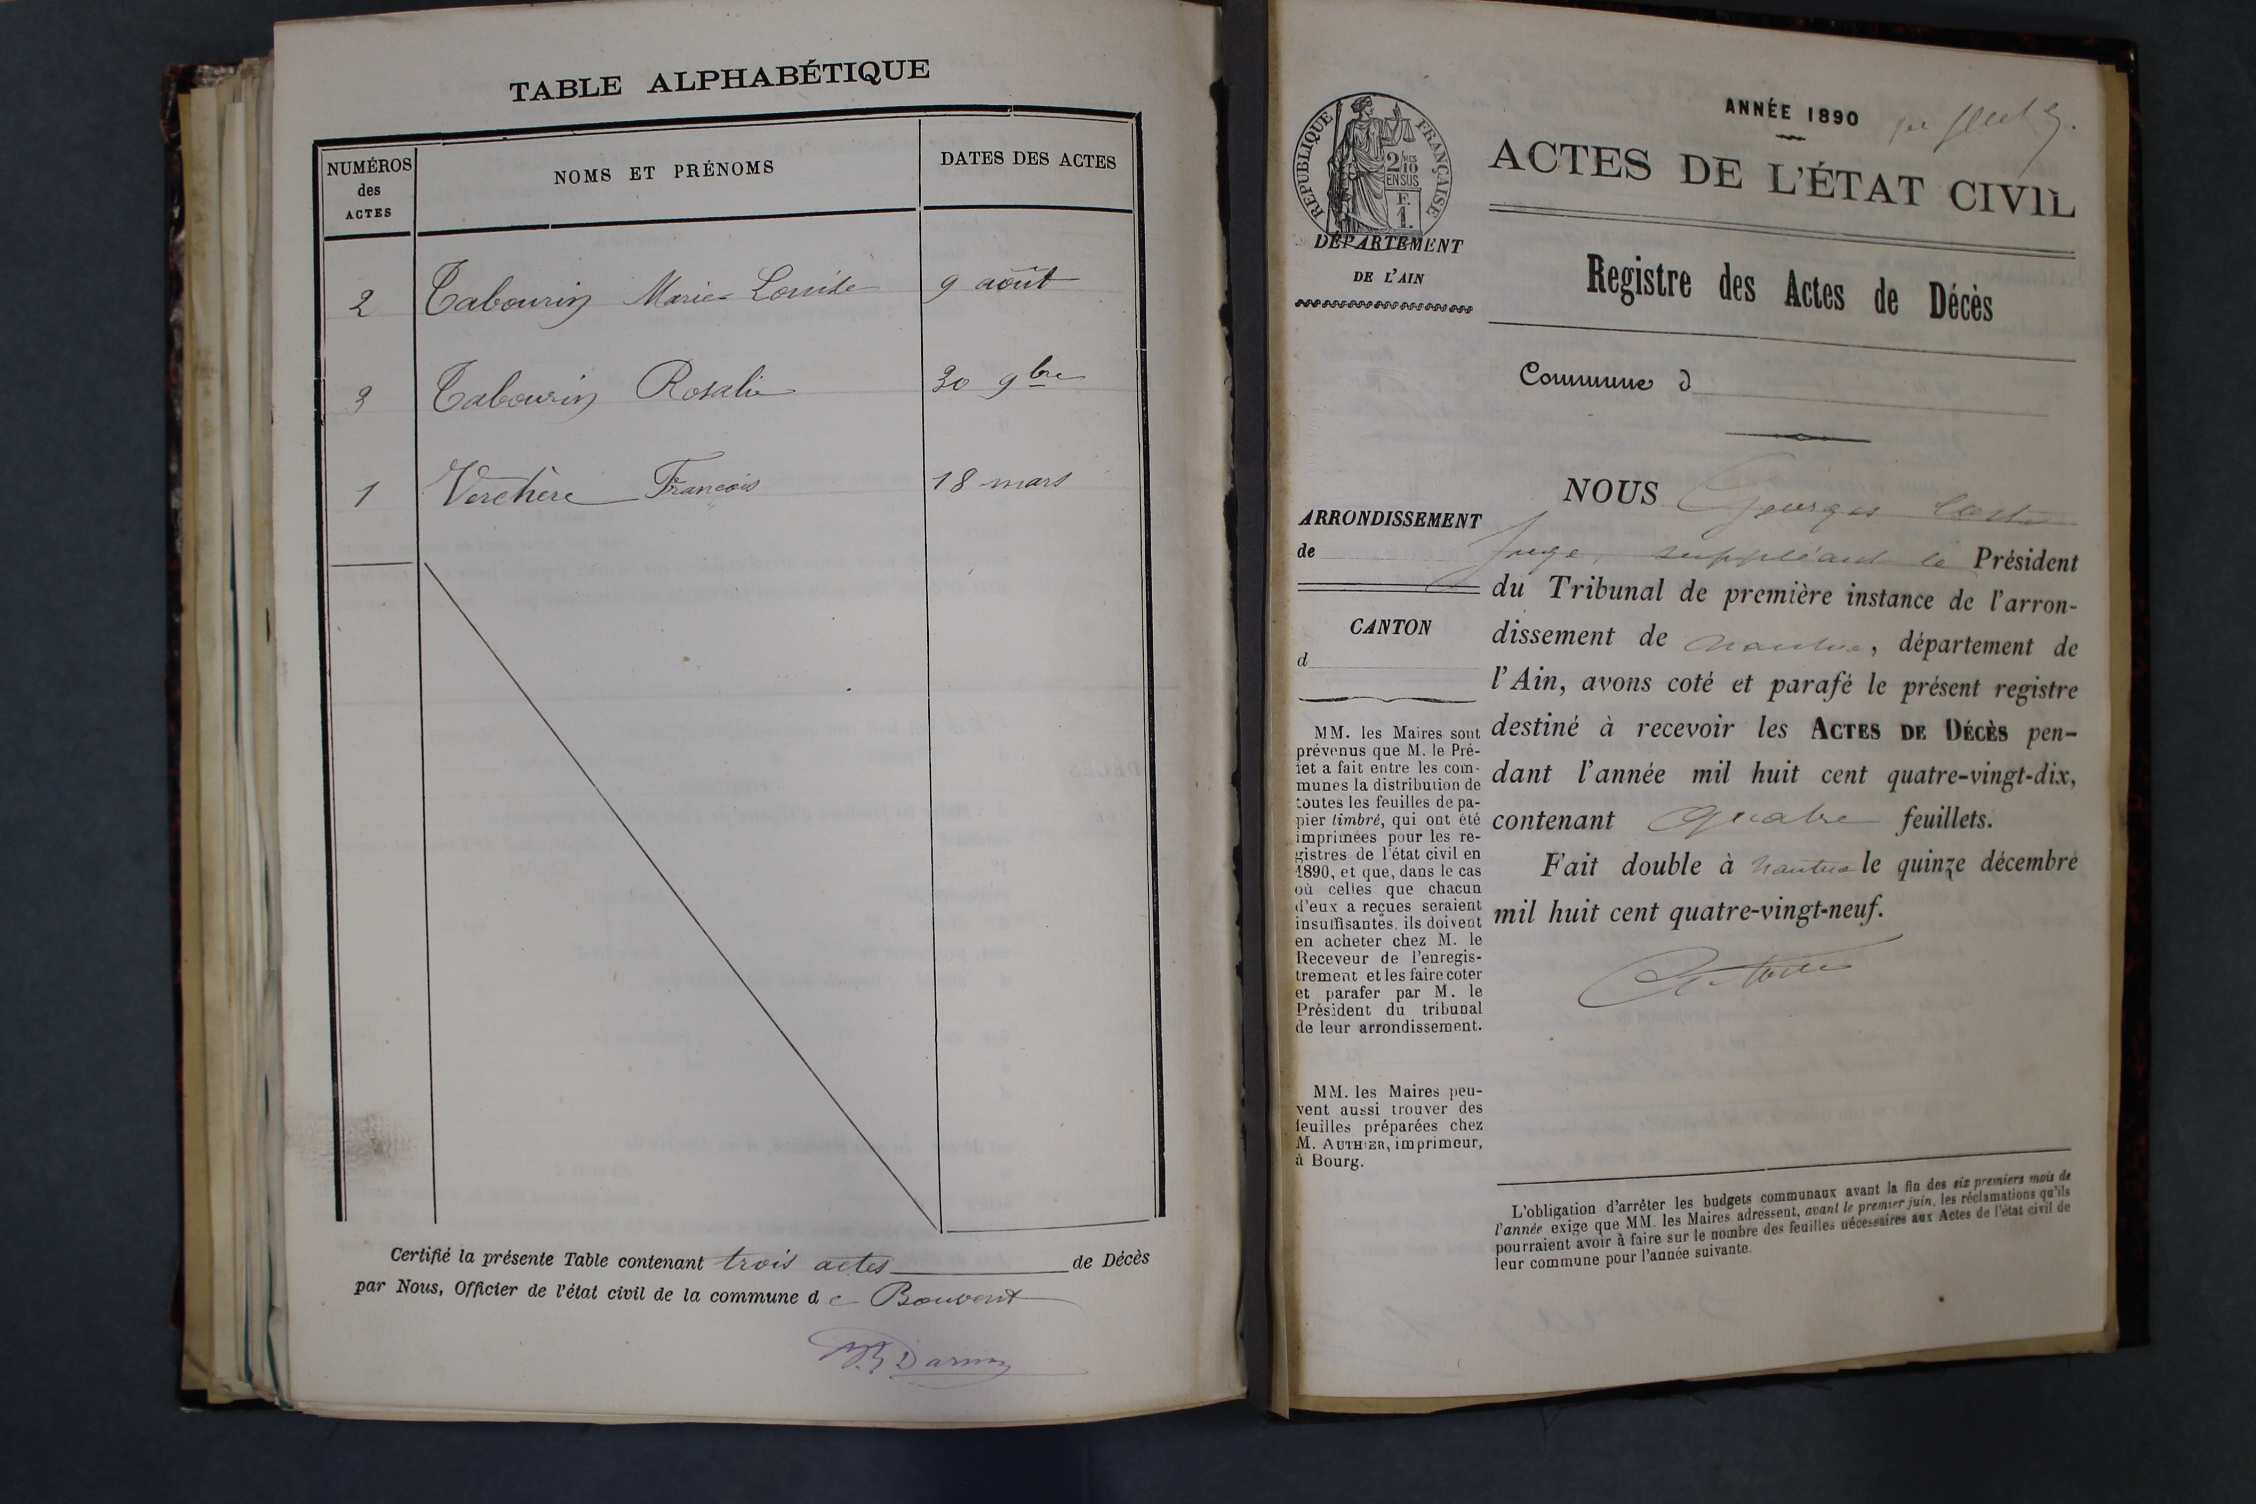 TABLE ALPHABÉTIQUE
NUMÉROS
des
ACTES
NOMS ET PRÉNOMS
DATES DES ACTES
2 Tabourin Marie Louise 9 août
3 Tabourin Rosalie 30 9bre
1 Verchère François 18 mars
Certifié la présente Table contenant trois actes de Décès
par Nous, Officier de l'état civil de la commune de Bouvent
Darmez
ANNÉE 1890
ACTES DE L'ÉTAT CIVIL
RÉPUBLIQUE FRANÇAISE
2/10MES
EN SUS
F.
1.
DÉPARTEMENT
DE L'AIN
Registre des Actes de Décès
Commune d
ARRONDISSEMENT
de
CANTON
d
MM. les Maires sont
prévenus que M. le Pré-
fet a fait entre les com-
munes la distribution de
toutes les feuilles de pa-
pier timbré, qui ont été
imprimées pour les re-
gistres de l'état civil en
1890, et que, dans le cas
où celles que chacun
d'eux a reçues seraient
insuffisantes, ils doivent
en acheter chez M. le
Receveur de l'enregis-
trement et les faire coter
et parafer par M. le
Président du tribunal
de leur arrondissement.
MM. les Maires peu-
vent aussi trouver des
feuilles préparées chez
M. AUTHIER, imprimeur,
à Bourg.
NOUS Georges
Juge, suppléant le Président
du Tribunal de première instance de l'arron-
dissement de Nantua, département de
l'Ain, avons coté et parafé le présent registre
destiné à recevoir les ACTES DE DÉCÈS pen-
dant l'année mil huit cent quatre-vingt-dix,
contenant quatre feuillets.
Fait double à Nantua le quinze décembre
mil huit cent quatre-vingt-neuf.
L'obligation d'arrêter les budgets communaux avant la fin des six premiers mois de
l'année exige que MM. les Maires adressent, avant le premier juin, les réclamations qu'ils
pourraient avoir à faire sur le nombre des feuilles nécessaires aux Actes de l'état civil de
leur commune pour l'année suivante.